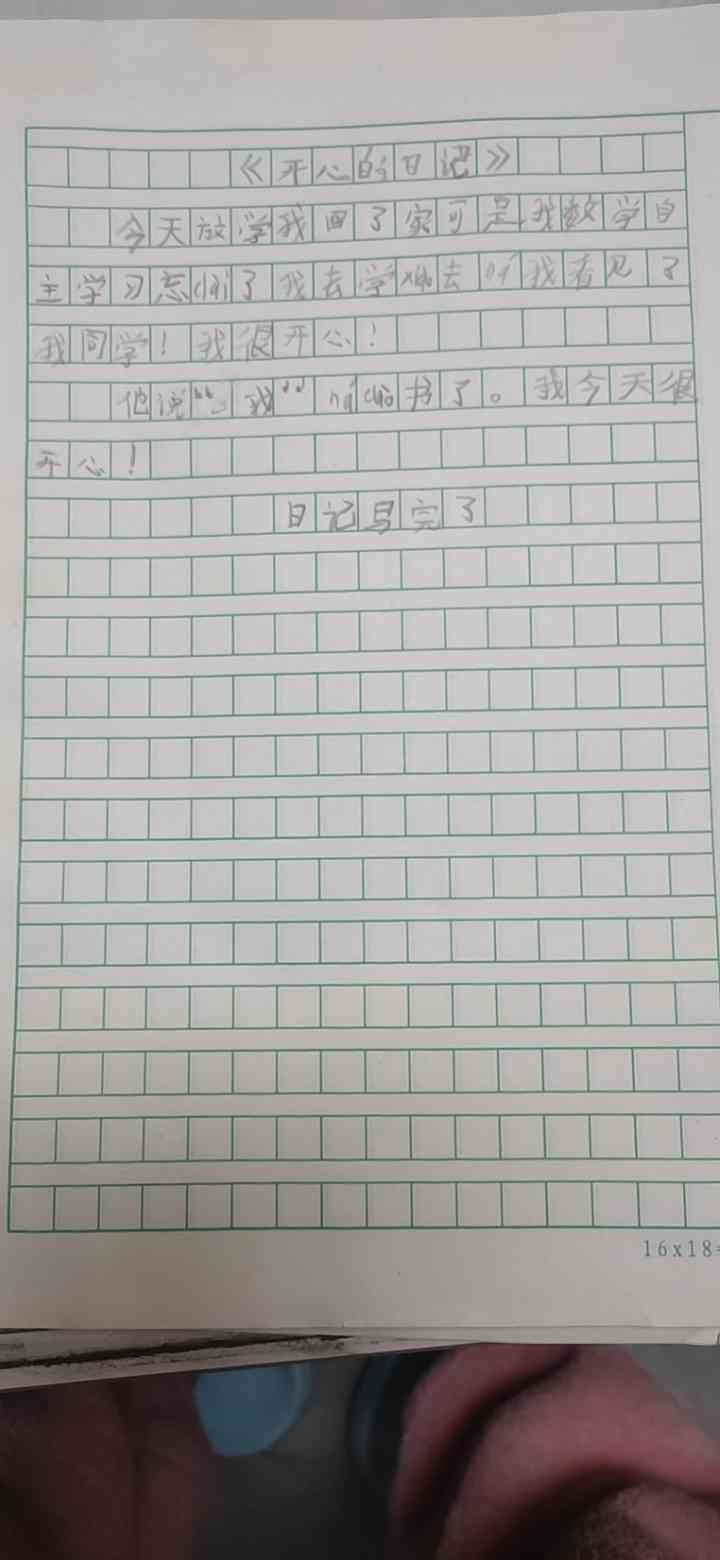 《开心的日记》
今天放学我回了家可是我数学自
主学习忘dài了我去学xiào去时我看见了
我同学！我很开心！
他说“我”ná cuò书了。我今天很
开心！
日记写完了
16x18=